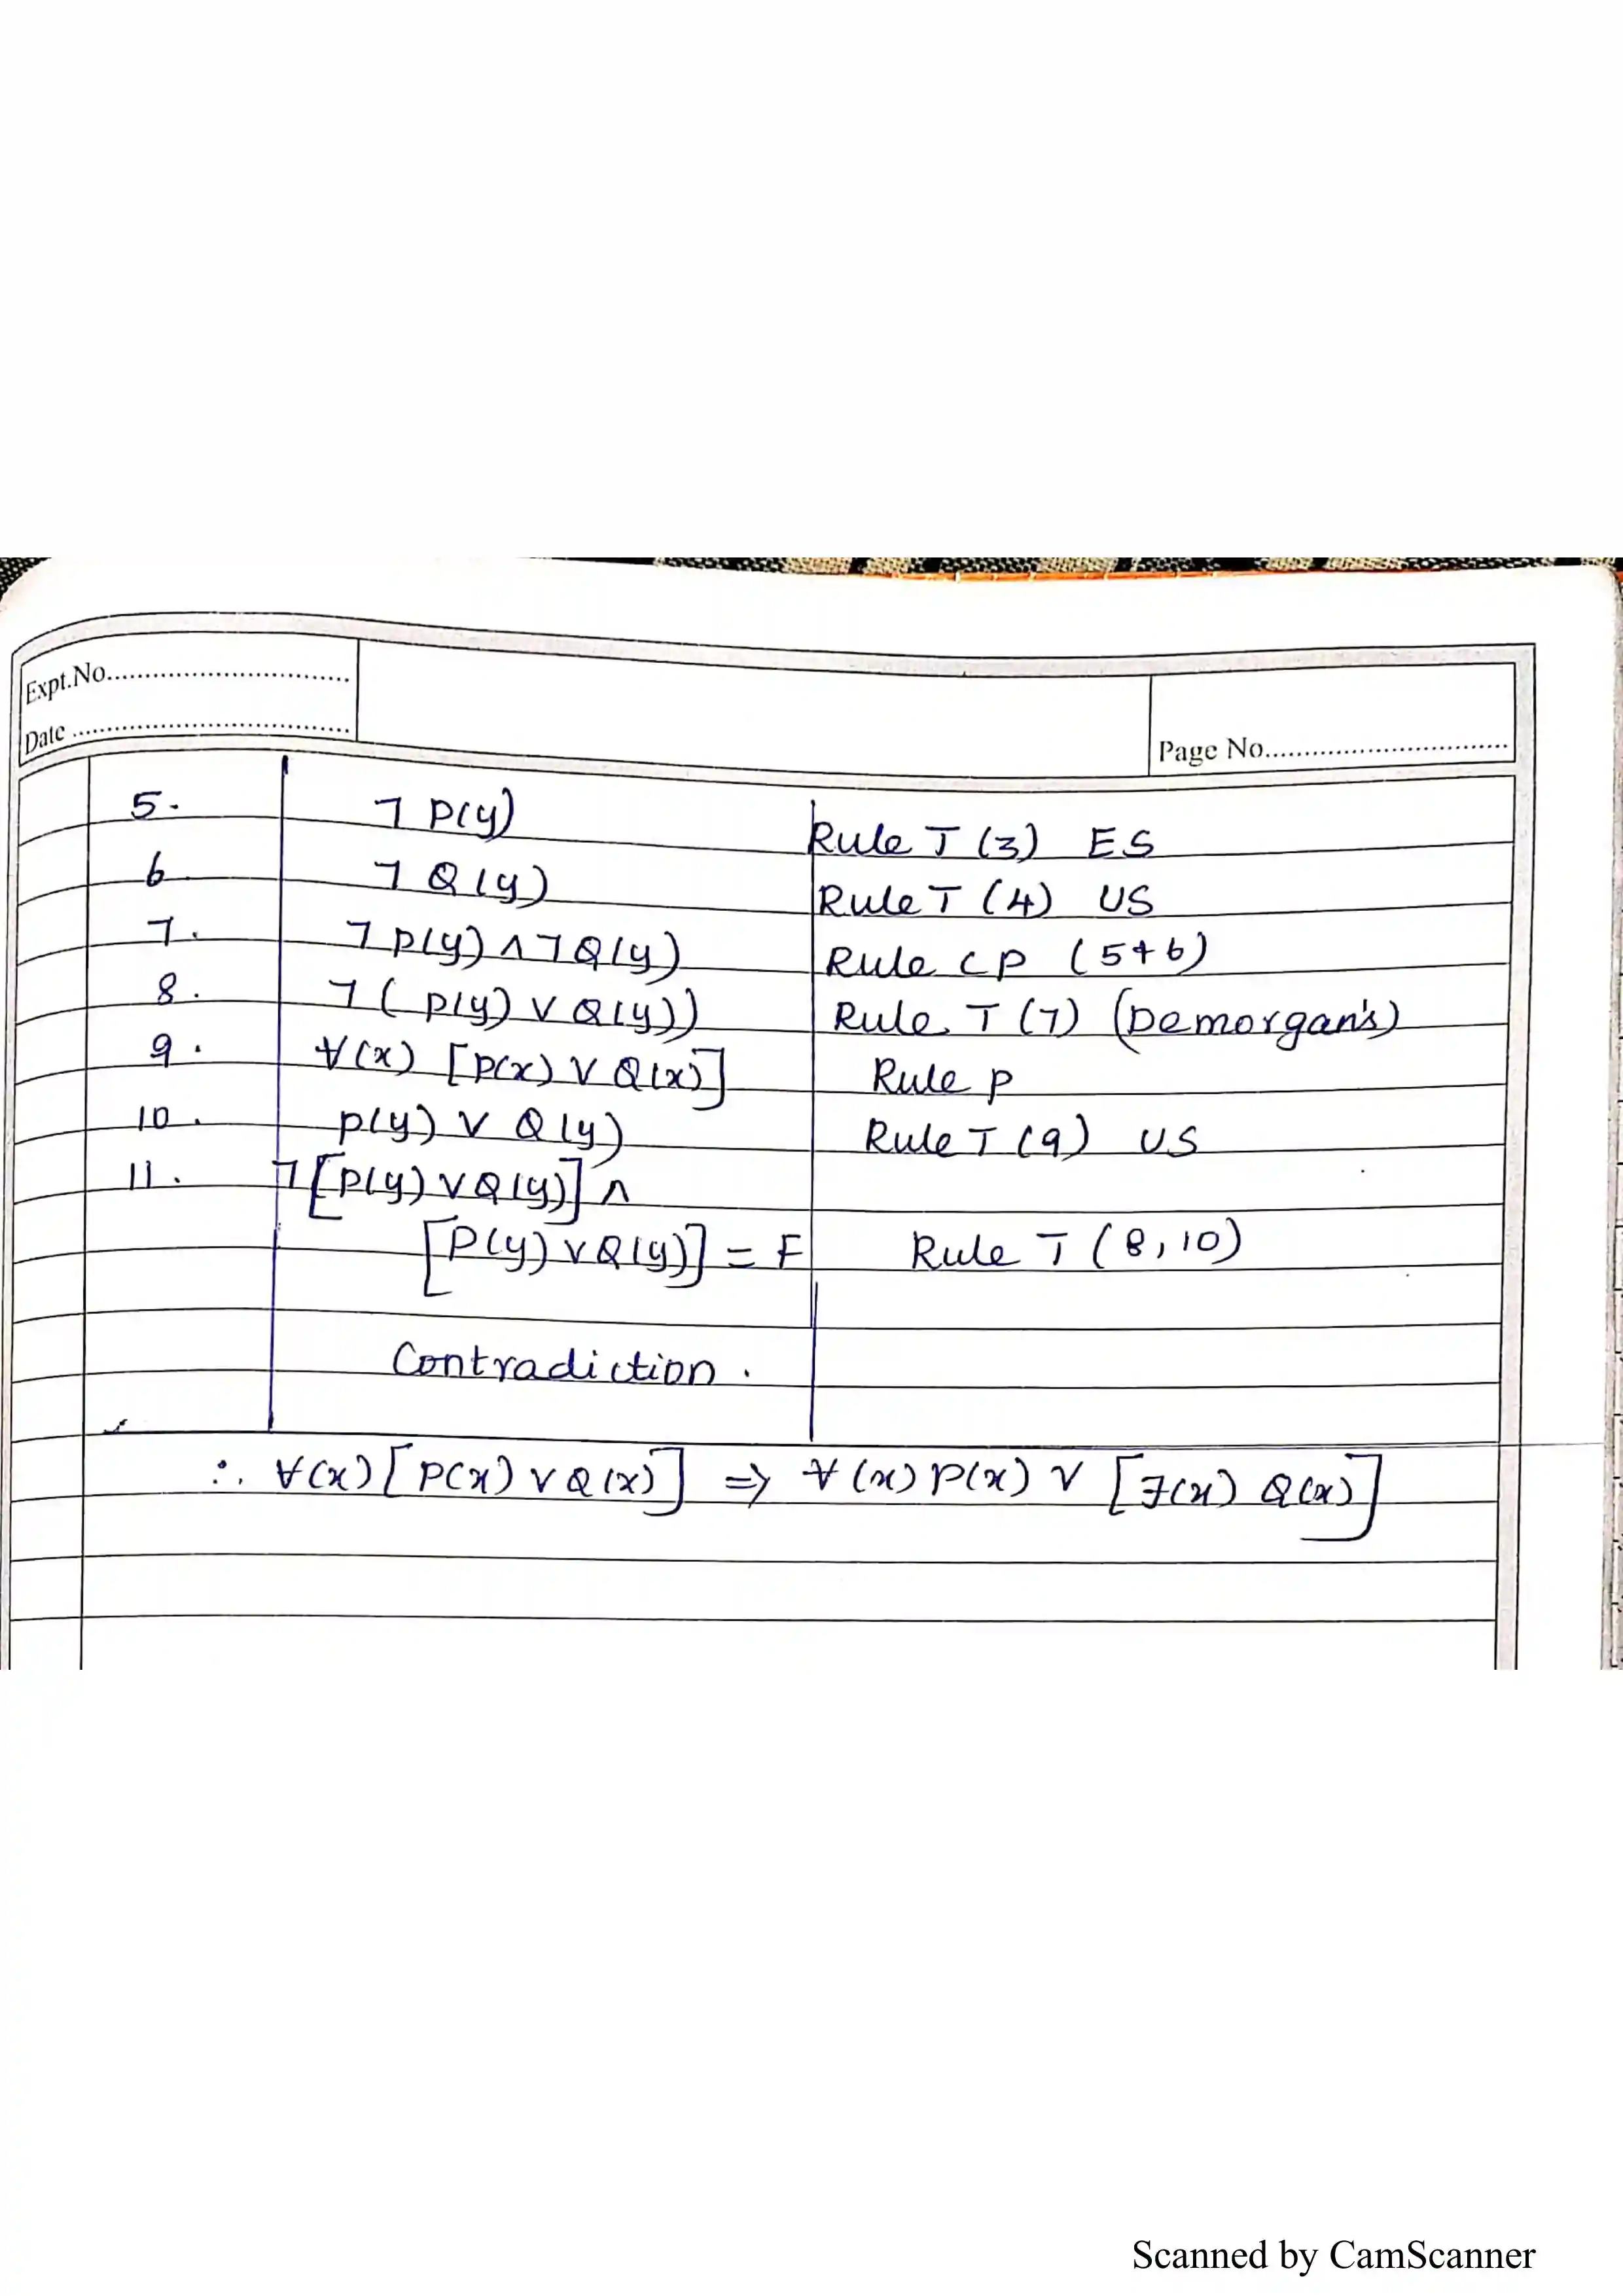 Expt.No..............................
Date ....................................
Page No..............................
5. ¬ P(y) Rule T (3) ES
6 ¬ Q(y) Rule T (4) US
7. ¬ P(y) ∧ ¬ Q(y) Rule CP (5+6)
8. ¬ ( P(y) ∨ Q(y)) Rule T (7) (Demorgan's)
9. ∀(x) [P(x) ∨ Q(x)] Rule P
10. P(y) ∨ Q(y) Rule T (9) US
11. ¬ [P(y) ∨ Q(y)] ∧
[P(y) ∨ Q(y)] = F Rule T (8,10)
Contradiction.
∴ ∀(x) [P(x) ∨ Q(x)] ⇒ ∀(x) P(x) ∨ [∃(x) Q(x)]
Scanned by CamScanner